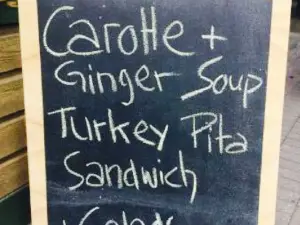 Carotte +
Ginger Soup
Turkey Pita
Sandwich